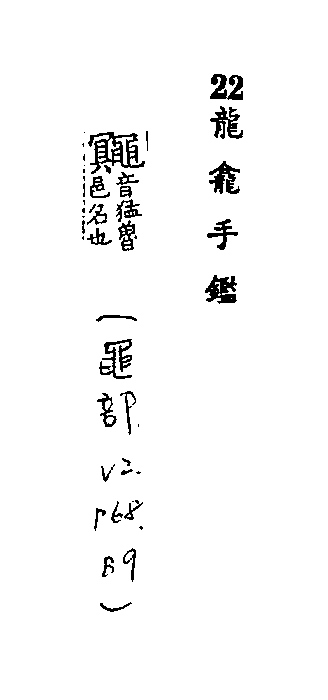 22龍龕手鑑
鼆音猛魯
邑名也
(黽部.V2.P68.B9)